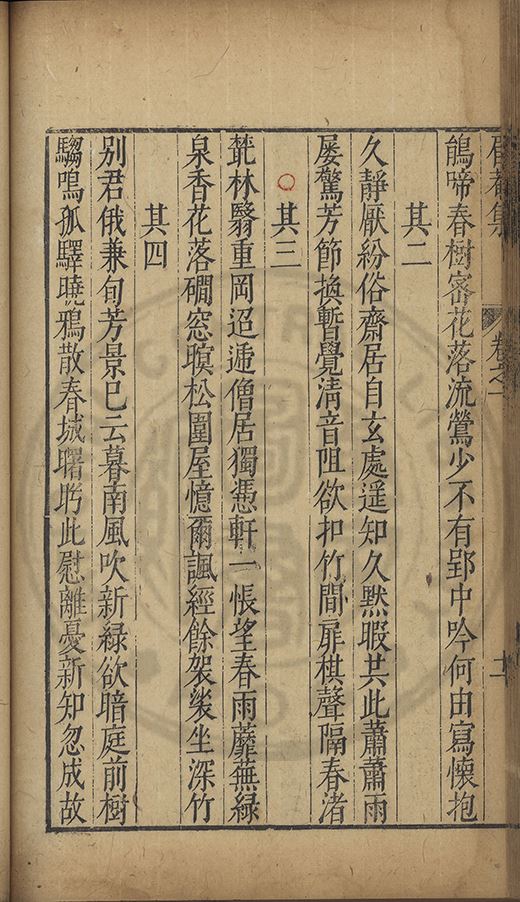 眉菴集 卷之一
鵑啼春樹密花落流鶯少不有郢中吟何由寫懷抱
其二
久靜厭紛俗齋居自玄處遥知久默暇共此蕭蕭雨
屢驚芳節換暫覺淸音阻欲扣竹間扉棋聲隔春渚
其三
梵林翳重岡迢逓僧居獨憑軒一悵望春雨蘼蕪緑
泉香花落磵窓暝松圍屋憶爾諷經餘袈裟坐深竹
其四
别君俄兼旬芳景巳云暮南風吹新緑欲暗庭前樹
騶鳴孤驛曉鴉散春城曙眄此慰離憂新知忽成故